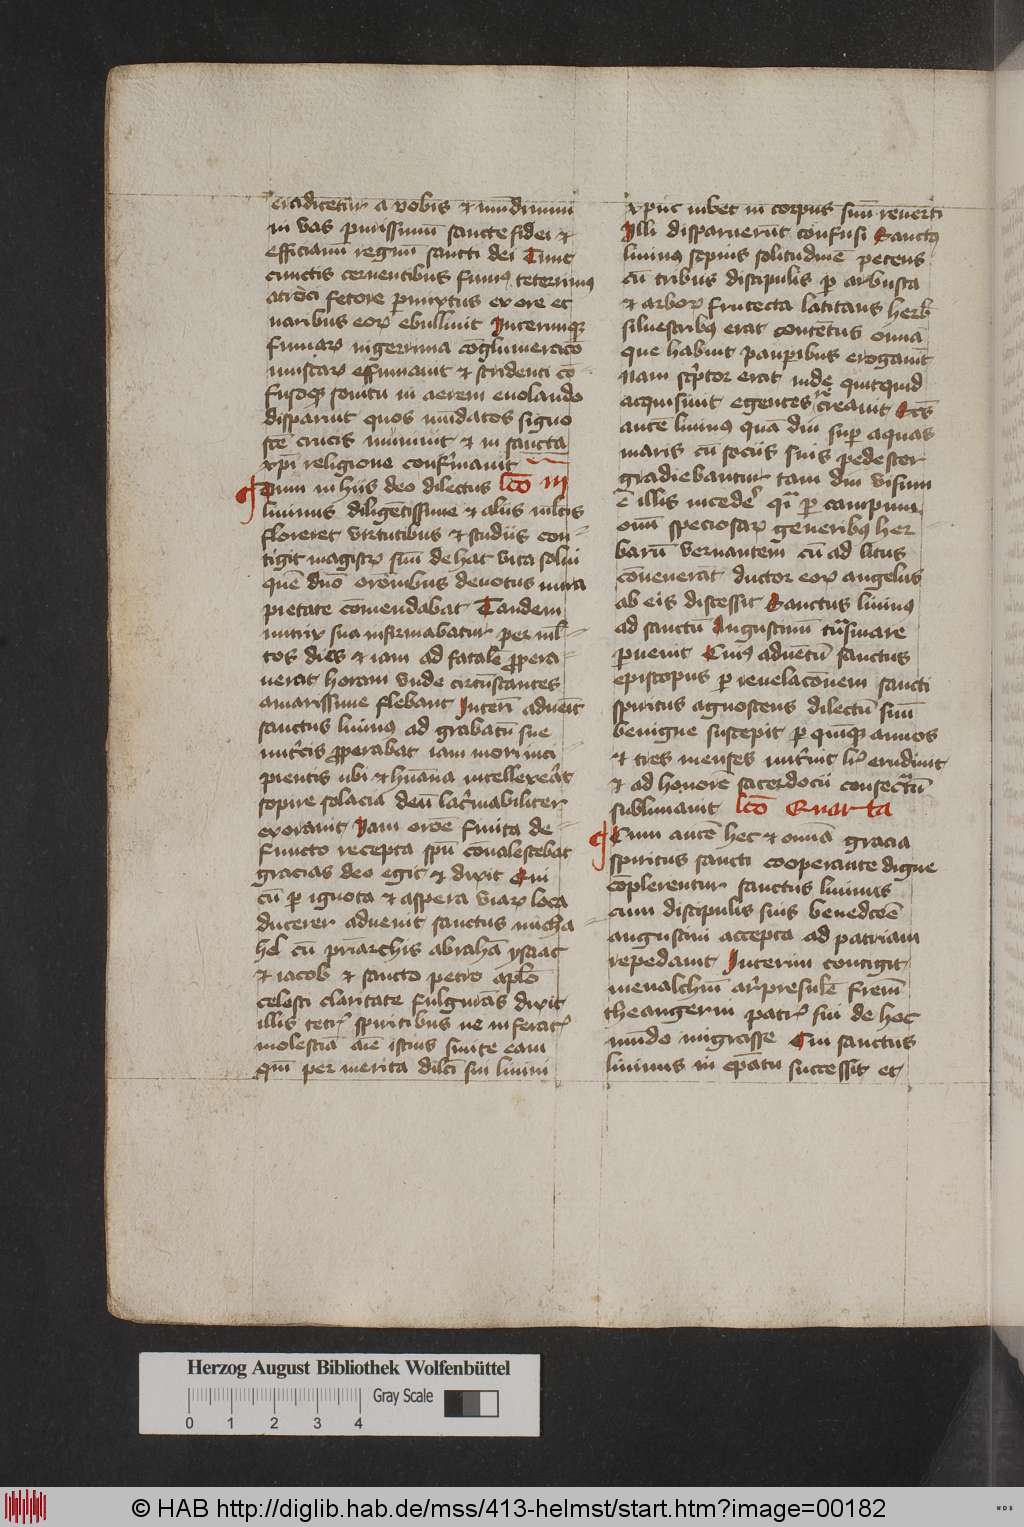 eradicetur a vobis et mundemini
in vas purissimum sancte fidei et
efficiamini regnum sancti dei Tunc
cunctis cernentibus fumus teterrimus
atroci fetore permixtus ex ore et
naribus eorum ebullivit
fumarum nigerrima
et stridenti con
fusoque sonitu in aerem evolando
disparuit quos mundatos signo
sancte crucis munivit et in sancta
christi religione confirmavit
Cum in hiis deo dilectus lco iii
livinus diligentissime et aliis multis
floreret virtutibus et studiis con
tigit magistrum suum de hac vita solvi
quem suo orationibus devotus mira
pietate comendabat Tandem
nutrix sua infirmabatur per mul
tos dies et iam ad fatalem propera
verat horam unde circumstantes
amarissime flebant Interim advenit
sanctus livinus ad grabatum sue
nutricis properabat iam mori inci
pientis ubi et humana intellexerat
sopire solacia deum lacrimabiliter
exoravit Iam oratione finita de
functo recepta spiritu convalescebat
gracias deo egit et dixit Qui
cum per ignota et aspera viarum loca
ducerer advenit sanctus micha
hel cum patriarchis abraham ysaac
et iacob et sancto petro apostolo
celesti claritate fulgurans dixit
illis tetris spiritibus ne inferatis
molestiam anime istius sinite eam
quoniam per merita dilecti sui livini
christus iubet in corpus suum reverti
Illi disparuerunt confusi Sanctus
livinus sepius solitudine petens
cum tribus discipulis per arbusta
et arborum frutecta latitans herbis
silvestribus erat contentus omnia
que habuit pauperibus erogavit
Nam scriptor erat inde quitquid
acquisivit egentes recreavit Sanctus
autem livinus quadam die super aquas
maris cum sociis suis pedester
gradiebantur tam diu visum
est illis incedere quasi per campum
omnium speciosarum generibus her
barum vernantem cum ad litus
convenerat ductor eorum angelus
ab eis discessit Sanctus livinus
ad sanctum Augustinum transmare
pervenit Cuius adventum sanctus
episcopus per revelacionem sancti
spiritus agnoscens dilectum suum
benigne suscepit per quinque annos
et tres menses nutrivit litteris erudivit
et ad honorem sacerdocii consecratum
sublimavit lco Quarta
Cum autem hec et omnia gracia
spiritus sancti cooperante digne
complerentur sanctus livinus
cum discipulis suis benedictione
augustini accepta ad patriam
repedavit Interim contigit
menalchium archipresulem fratrem
theangerni patris sui de hoc
mundo migrasse Cui sanctus
livinus in episcopatu successit et
Herzog August Bibliothek Wolfenbüttel
0 1 2 3 4 Gray Scale
© HAB http://diglib.hab.de/mss/413-helmst/start.htm?image=00182
WDB